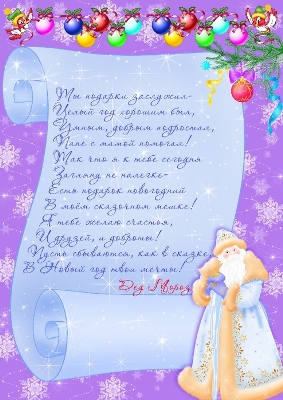 Ты подарки заслужил-
Целый год хорошим был,
Умным, добрым подрастал,
Папе с мамой помогал!
Так что я к тебе сегодня
Загляну не налегке-
Есть подарок новогодний
В моём сказочном мешке!
Я тебе желаю счастья,
И друзей, и доброты!
Пусть сбываются, как в сказке,
В Новый год твои мечты!
Дед Мороз